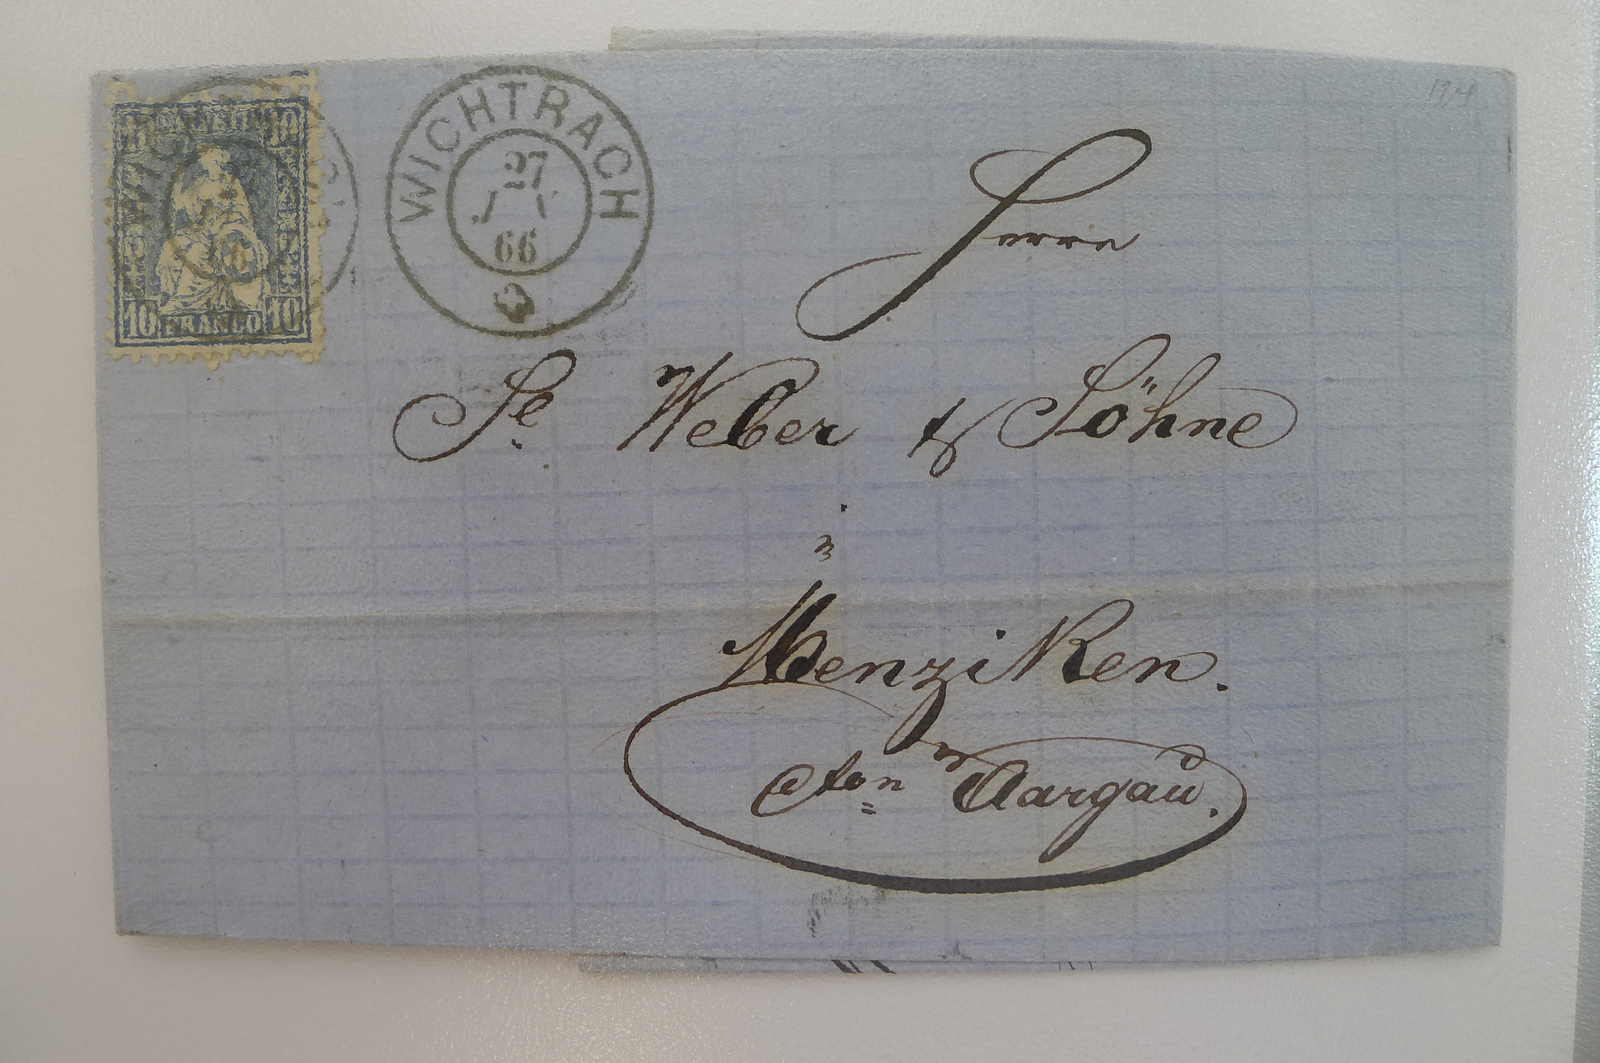 HELVETIA
10 10
10 FRANCO 10
WICHTRACH
27
66
Herrn
Sl. Weber & Söhne
in
Menziken.
Cton Aargau.